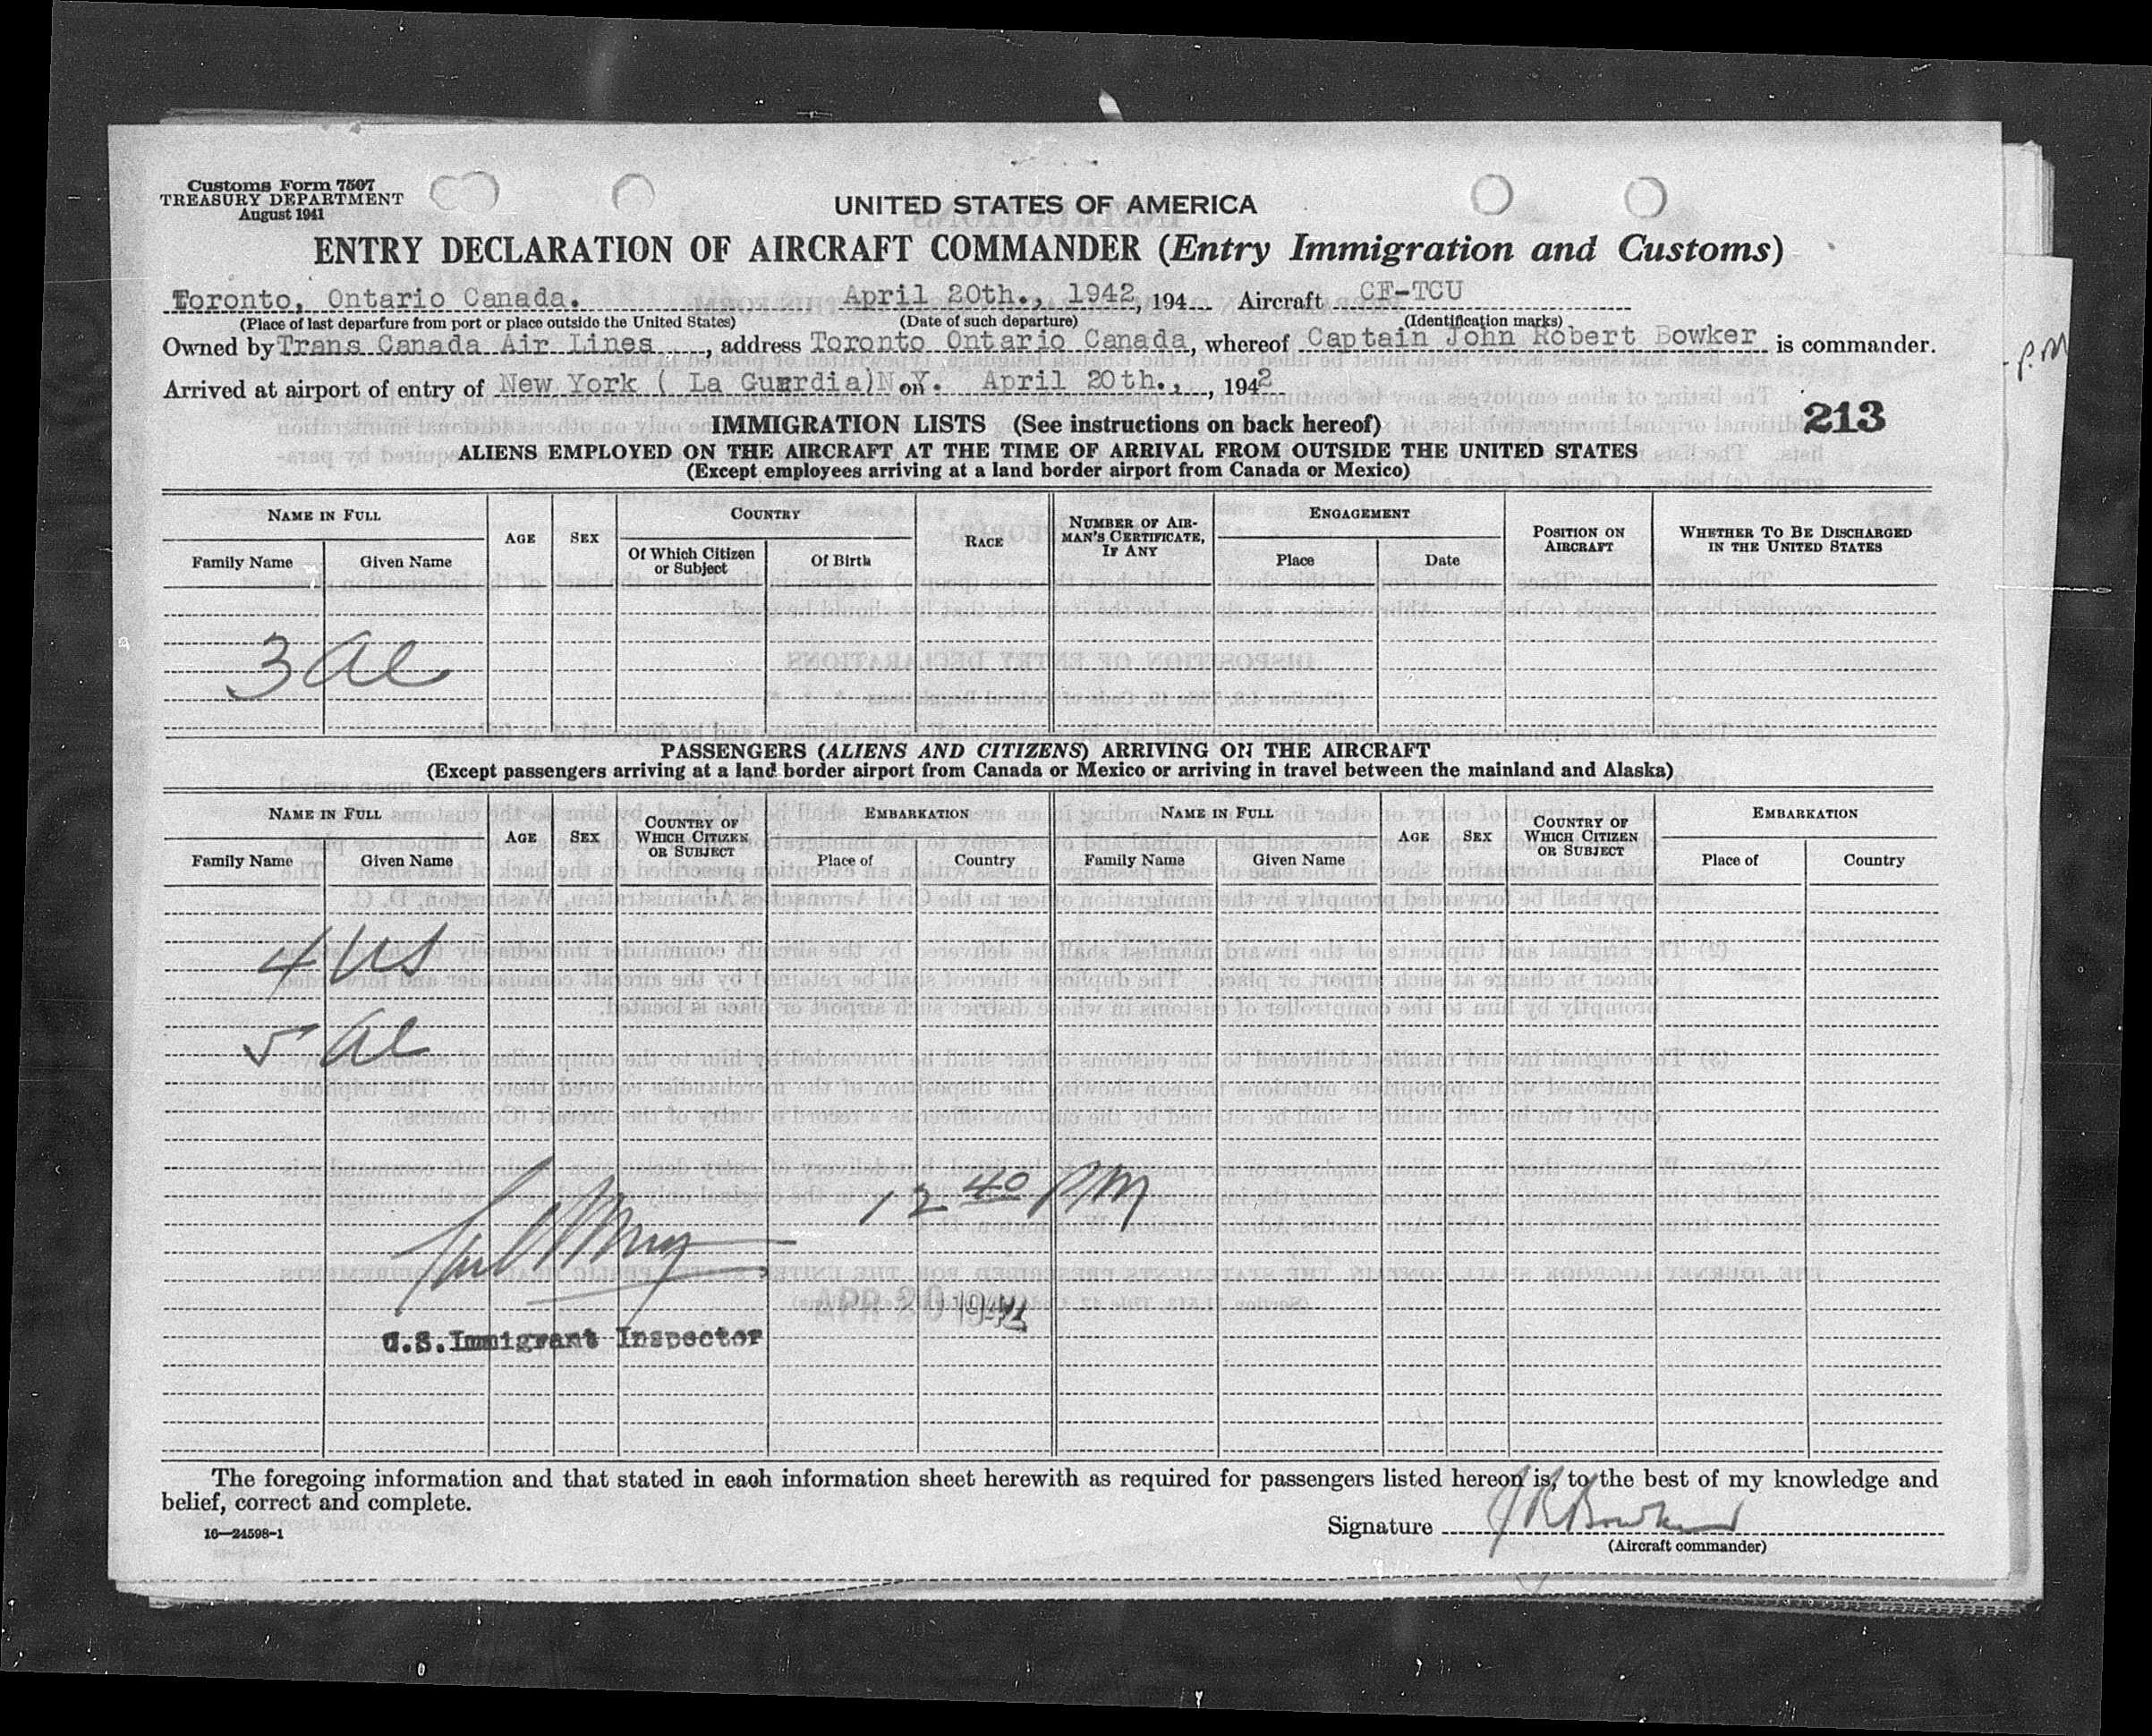 Customs Form 7507
TREASURY DEPARTMENT
August 1941
UNITED STATES OF AMERICA
ENTRY DECLARATION OF AIRCRAFT COMMANDER (Entry Immigration and Customs)
Toronto, Ontario Canada. April 20th., 1942, 194 Aircraft CF-TCU
(Place of last departure from port or place outside the United States) (Date of such departure) (Identification marks)
Owned by Trans Canada Air Lines, address Toronto Ontario Canada, whereof Captain John Robert Bowker is commander.
P.M
Arrived at airport of entry of New York ( La Guardia)N.Y. on April 20th., , 1942
213
IMMIGRATION LISTS (See instructions on back hereof)
ALIENS EMPLOYED ON THE AIRCRAFT AT THE TIME OF ARRIVAL FROM OUTSIDE THE UNITED STATES
(Except employees arriving at a land border airport from Canada or Mexico)
NAME IN FULL AGE SEX COUNTRY RACE NUMBER OF AIRMAN'S CERTIFICATE, IF ANY ENGAGEMENT POSITION ON AIRCRAFT WHETHER TO BE DISCHARGED IN THE UNITED STATES
Family Name Given Name Of Which Citizen or Subject Of Birth Place Date
3 al
PASSENGERS (ALIENS AND CITIZENS) ARRIVING ON THE AIRCRAFT
(Except passengers arriving at a land border airport from Canada or Mexico or arriving in travel between the mainland and Alaska)
NAME IN FULL AGE SEX COUNTRY OF WHICH CITIZEN OR SUBJECT EMBARKATION NAME IN FULL AGE SEX COUNTRY OF WHICH CITIZEN OR SUBJECT EMBARKATION
Family Name Given Name Place of Country Family Name Given Name Place of Country
4 US
5 al
12 40 PM
APR 20 1942
U.S. Immigrant Inspector
The foregoing information and that stated in each information sheet herewith as required for passengers listed hereon is, to the best of my knowledge and
belief, correct and complete.
16—24598-1
Signature J R Bowker
(Aircraft commander)